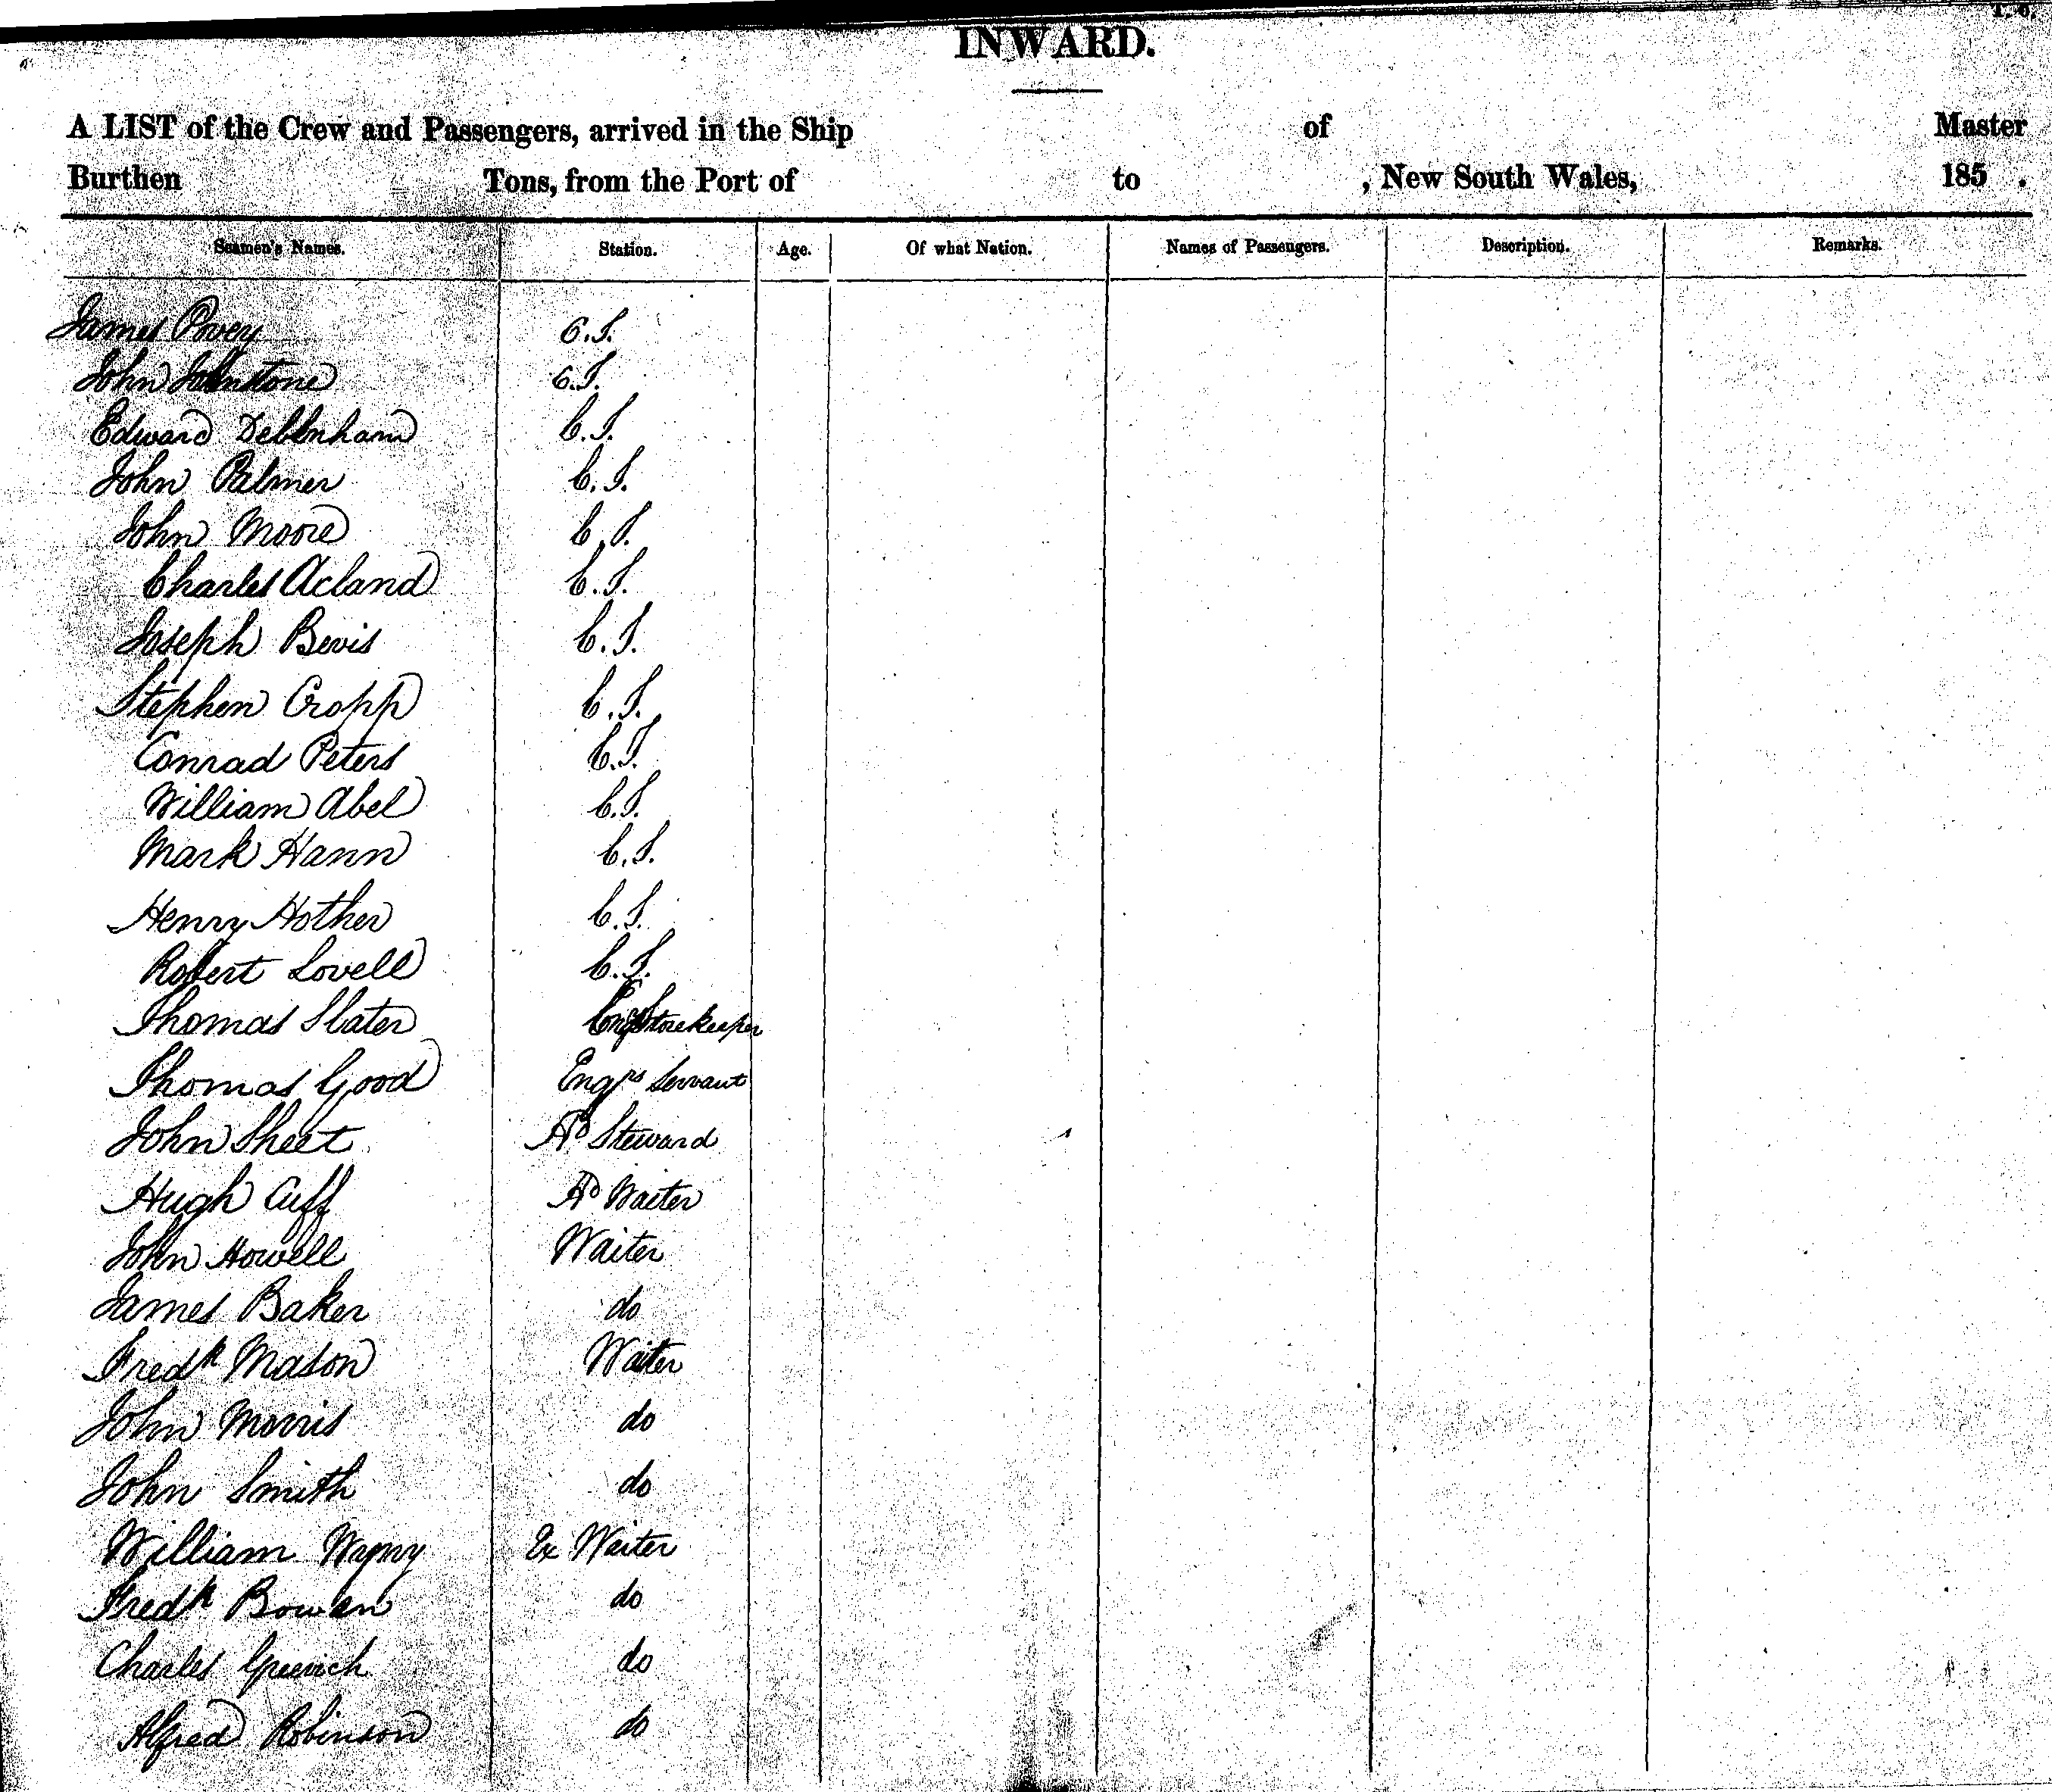 INWARD.
A LIST of the Crew and Passengers, arrived in the Ship of Master
Burthen Tons, from the Port of to , New South Wales, 185 .
Seamen's Names. Station. Age. Of what Nation. Names of Passengers. Description. Remarks.
James Povey C.T.
John Johnstone C.T.
Edward Debbnham C.T.
John Palmer C.T.
John Moore C.T.
Charles Acland C.T.
Joseph Bevis C.T.
Stephen Cropp C.T.
Conrad Peters C.T.
William Abel C.T.
Mark Hann C.T.
Henry Hother C.T.
Robert Lovell C.T.
Thomas Slater Storekeeper
Thomas Good Engrs Servant
John Sheet Hd Steward
Hugh Cuff Hd Waiter
John Howell Waiter
James Baker do
Fredk Mason Waiter
John Morris do
John Smith do
William Ex Waiter
Fredk Bowen do
Charles do
Alfred Robinson do